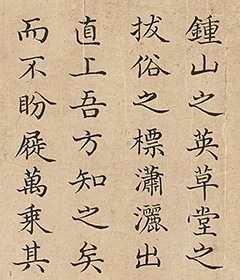 鍾山之英草堂之
拔俗之標瀟灑出
直上吾方知之矣
而不盼屣萬乘其